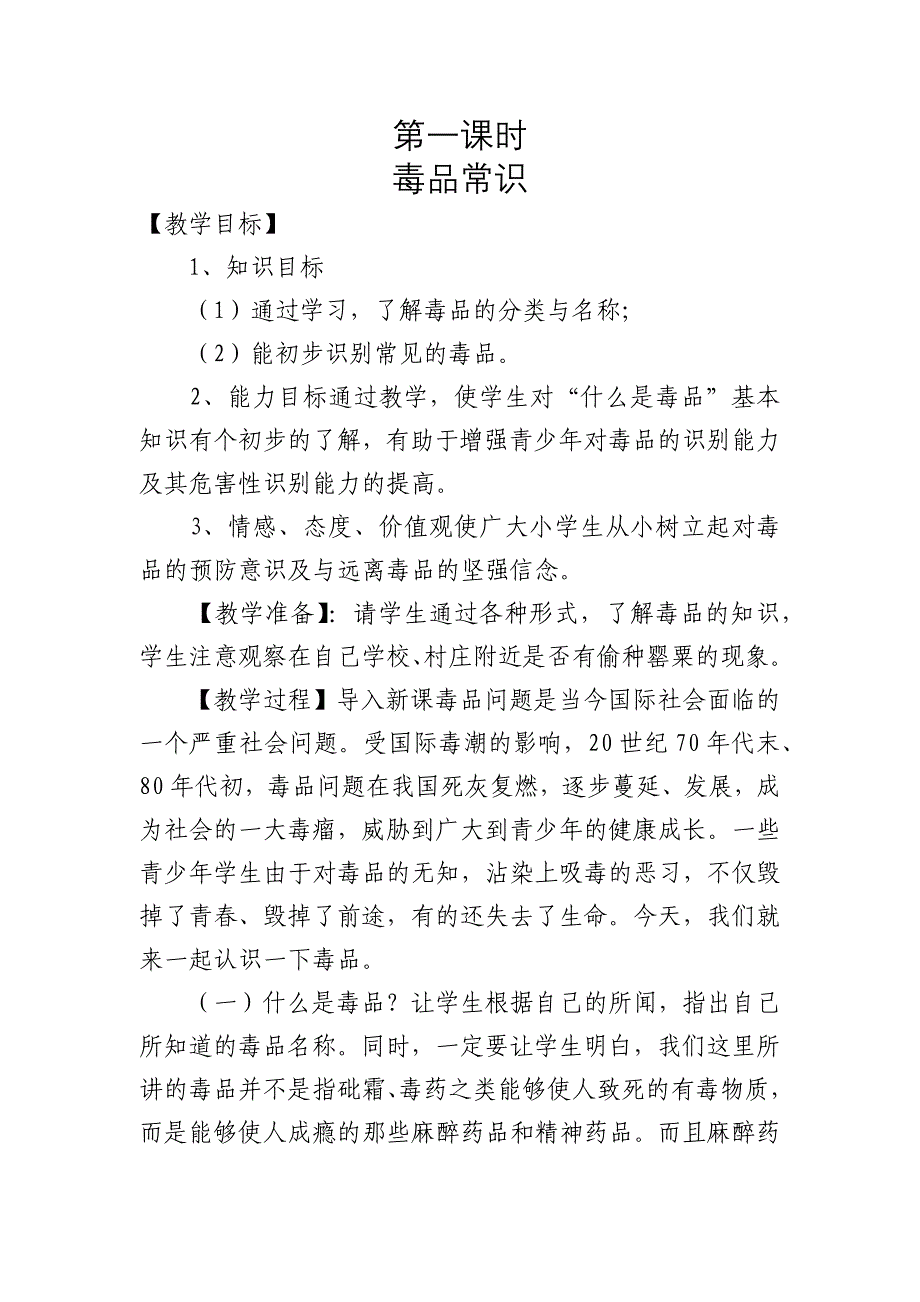 第一课时
毒品常识
【教学目标】
1、知识目标
（1）通过学习，了解毒品的分类与名称；
（2）能初步识别常见的毒品。
2、能力目标通过教学，使学生对“什么是毒品”基本
知识有个初步的了解，有助于增强青少年对毒品的识别能力
及其危害性识别能力的提高。
3、情感、态度、价值观使广大小学生从小树立起对毒
品的预防意识及与远离毒品的坚强信念。
【教学准备】：请学生通过各种形式，了解毒品的知识，
学生注意观察在自己学校、村庄附近是否有偷种罂粟的现象。
【教学过程】导入新课毒品问题是当今国际社会面临的
一个严重社会问题。受国际毒潮的影响，20世纪70年代末、
80年代初，毒品问题在我国死灰复燃，逐步蔓延、发展，成
为社会的一大毒瘤，威胁到广大到青少年的健康成长。一些
青少年学生由于对毒品的无知，沾染上吸毒的恶习，不仅毁
掉了青春、毁掉了前途，有的还失去了生命。今天，我们就
来一起认识一下毒品。
（一）什么是毒品？让学生根据自己的所闻，指出自己
所知道的毒品名称。同时，一定要让学生明白，我们这里所
讲的毒品并不是指砒霜、毒药之类能够使人致死的有毒物质，
而是能够使人成瘾的那些麻醉药品和精神药品。而且麻醉药